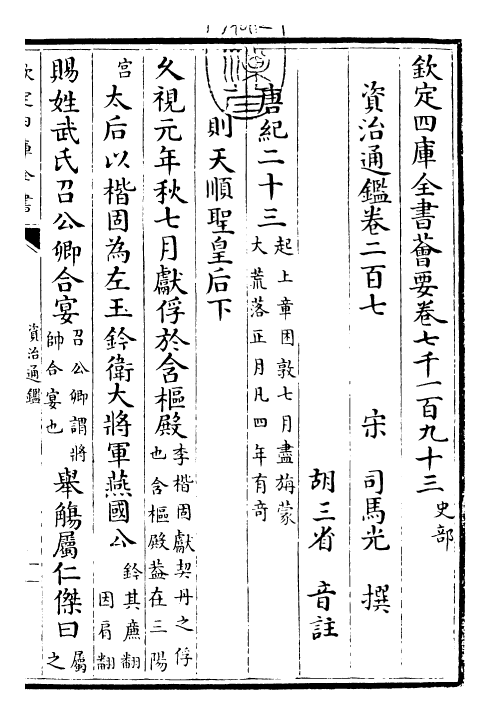 欽定四庫全書薈要卷七千一百九十三史部
資治通鑑卷二百七
宋 司馬光 撰
胡三省 音註
唐紀二十三起上章困敦七月盡旃蒙大荒落正月凡四年有奇
則天順聖皇后下
久視元年秋七月獻俘於含樞殿李楷固獻契丹之俘也含樞殿葢在三陽
宮太后以楷固為左玉鈐衛大將軍燕國公鈐其廉翻因肩翻
賜姓武氏召公卿合宴召公卿謂將帥合宴也舉觴屬仁傑曰屬之
欽定四庫全書
資治通鑑
一